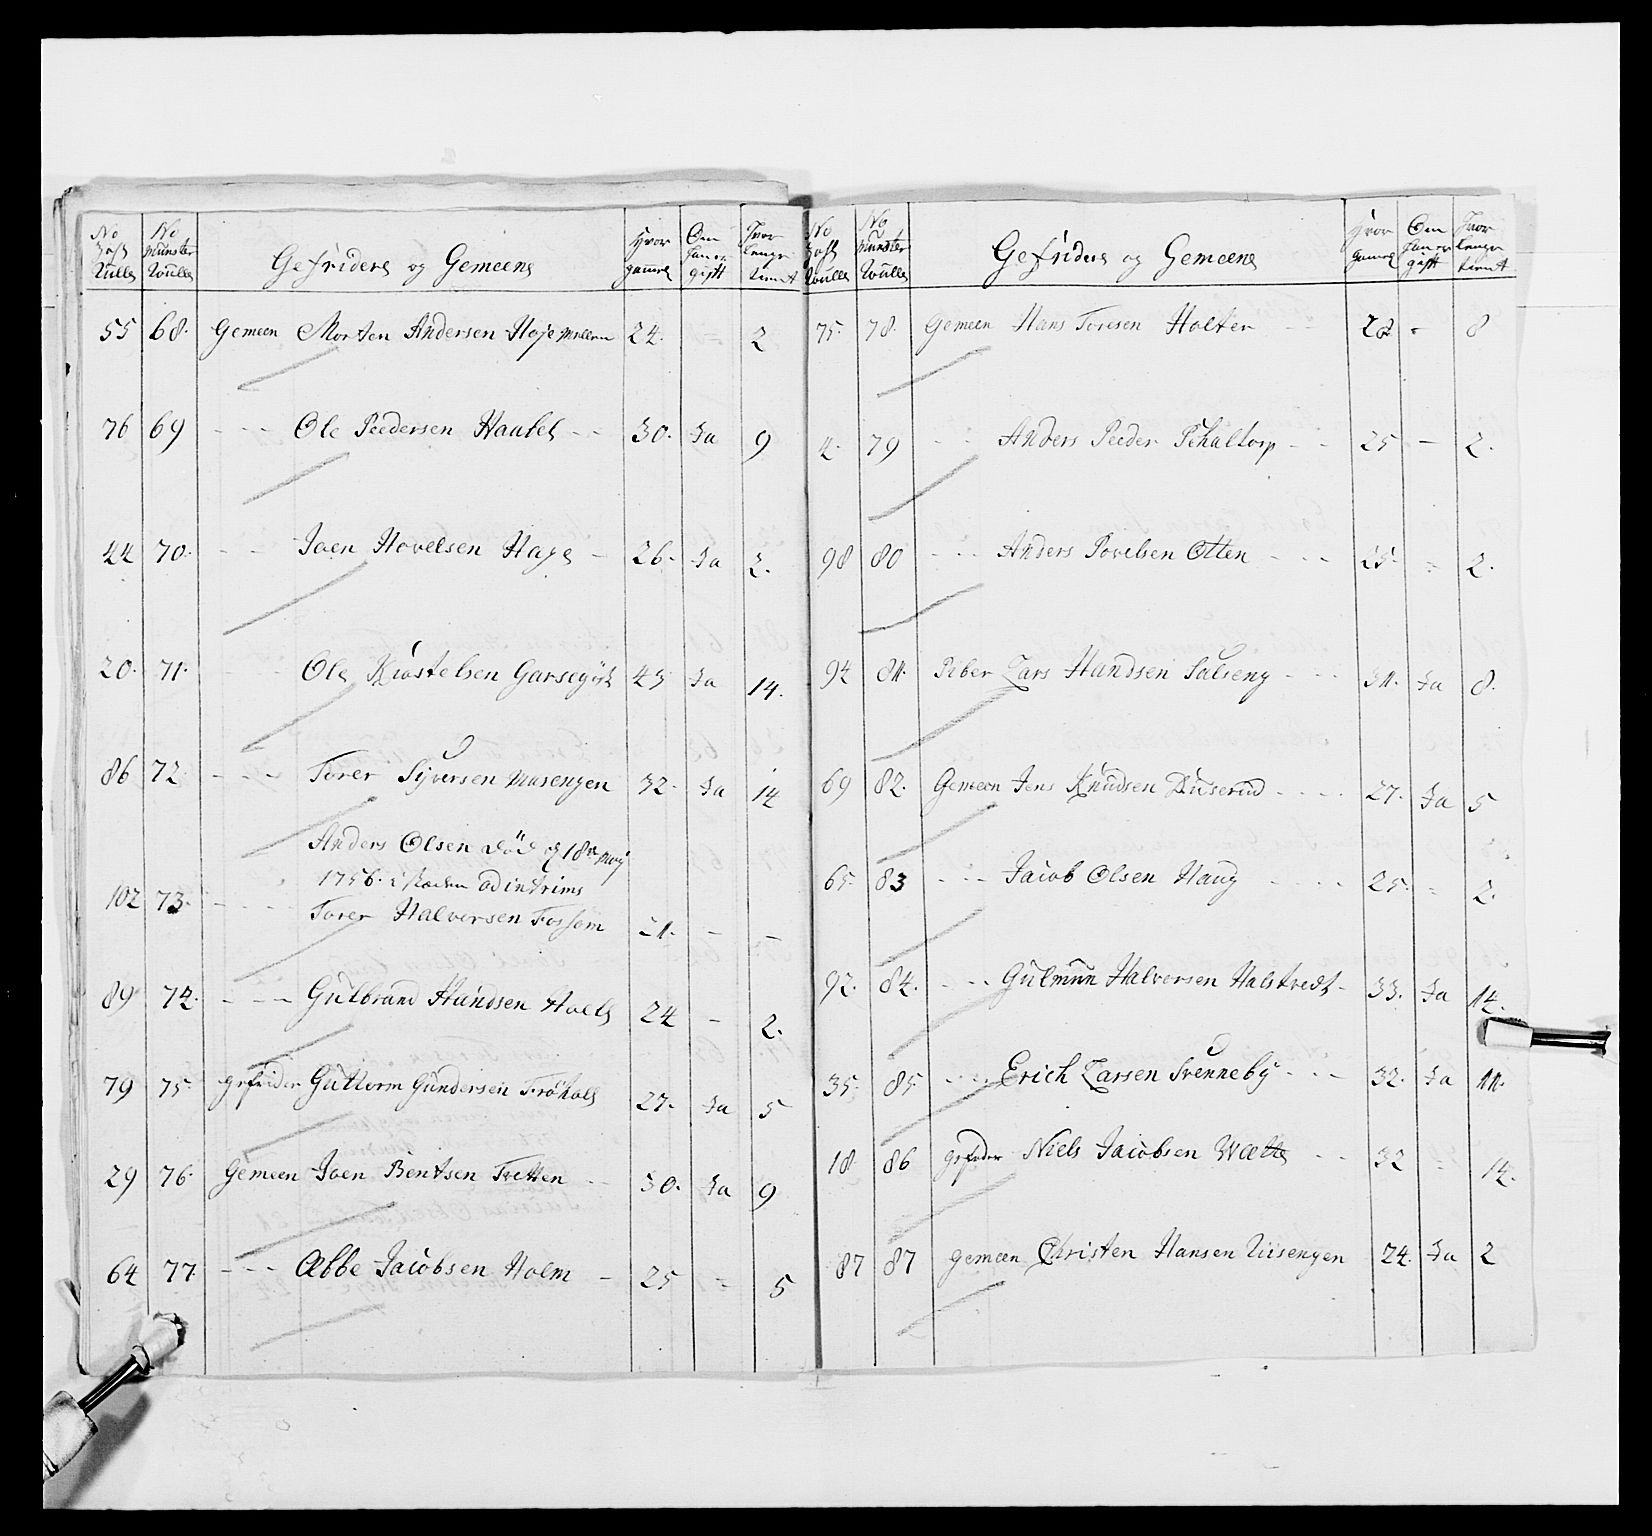 No | No Munster Roulle | Gefriders og Gemeene | Hvor gamel | Om hand er gift | Hvor lenge tient
55 | 68. | Gemeen Morten Andersen | 24. | = | 2
76 | 69 | - - - Ole Pedersen | 30. | Ja | 9
44 | 70. | - - Joen Hovelsen Hage - | 26. | Ja | 2.
20. | 71. | - - Ole | 43 | Ja | 14.
86 | 72 | - - - Torer Syversen Masengen | 32. | Ja | 14
Anders Olsen död d 18de Maij
1756. ad intrims
102 | 73. | - - - Torer Halversen Fossem | 21. | - | -
89 | 74. | - - - Gulbrand Hundsen Holls | 24 | - | 2.
79 | 75. | gefrider Guttorm Gundersen Fröhols | 27. | Ja | 5
29 | 76. | Gemeen Joen Bentsen Tretten - - | 30. | Ja | 9
64 | 77. | - - - Æbbe Jacobsen Holm - | 25 | = | 5
No | No Munster Roulle | Gefriders og Gemeene | Hvor gamel | Om hand er gift | Hvor lenge tient
75. | 78. | Gemeen Hans Toresen Holter | 28 | - | 8
4. | 79 | - - Anders Peeder | 25 | - | 2.
98 | 80 | - - - Anders Povelsen Otten - - - | 25. | = | 2.
94 | 81. | Piber Lars Hundsen Sulseng - - - | 31. | Ja | 8.
69 | 82. | Gemeen Jens Knudsen - - - | 27. | Ja | 5
65. | 83 | - - - Jacob Olsen Haug - - - | 25. | = | 2.
92. | 84. | - - - Gulmun Halversen Halstvedt - | 33. | Ja | 14.
35. | 85 | - - - Erich Larsen Svenneby - - - | 32. | Ja | 11.
18. | 86 | gefrider Niels Jacobsen Wætte - - | 32 | = | 14.
87 | 87 | gemeen Christen Hansen | 24. | Ja | 2